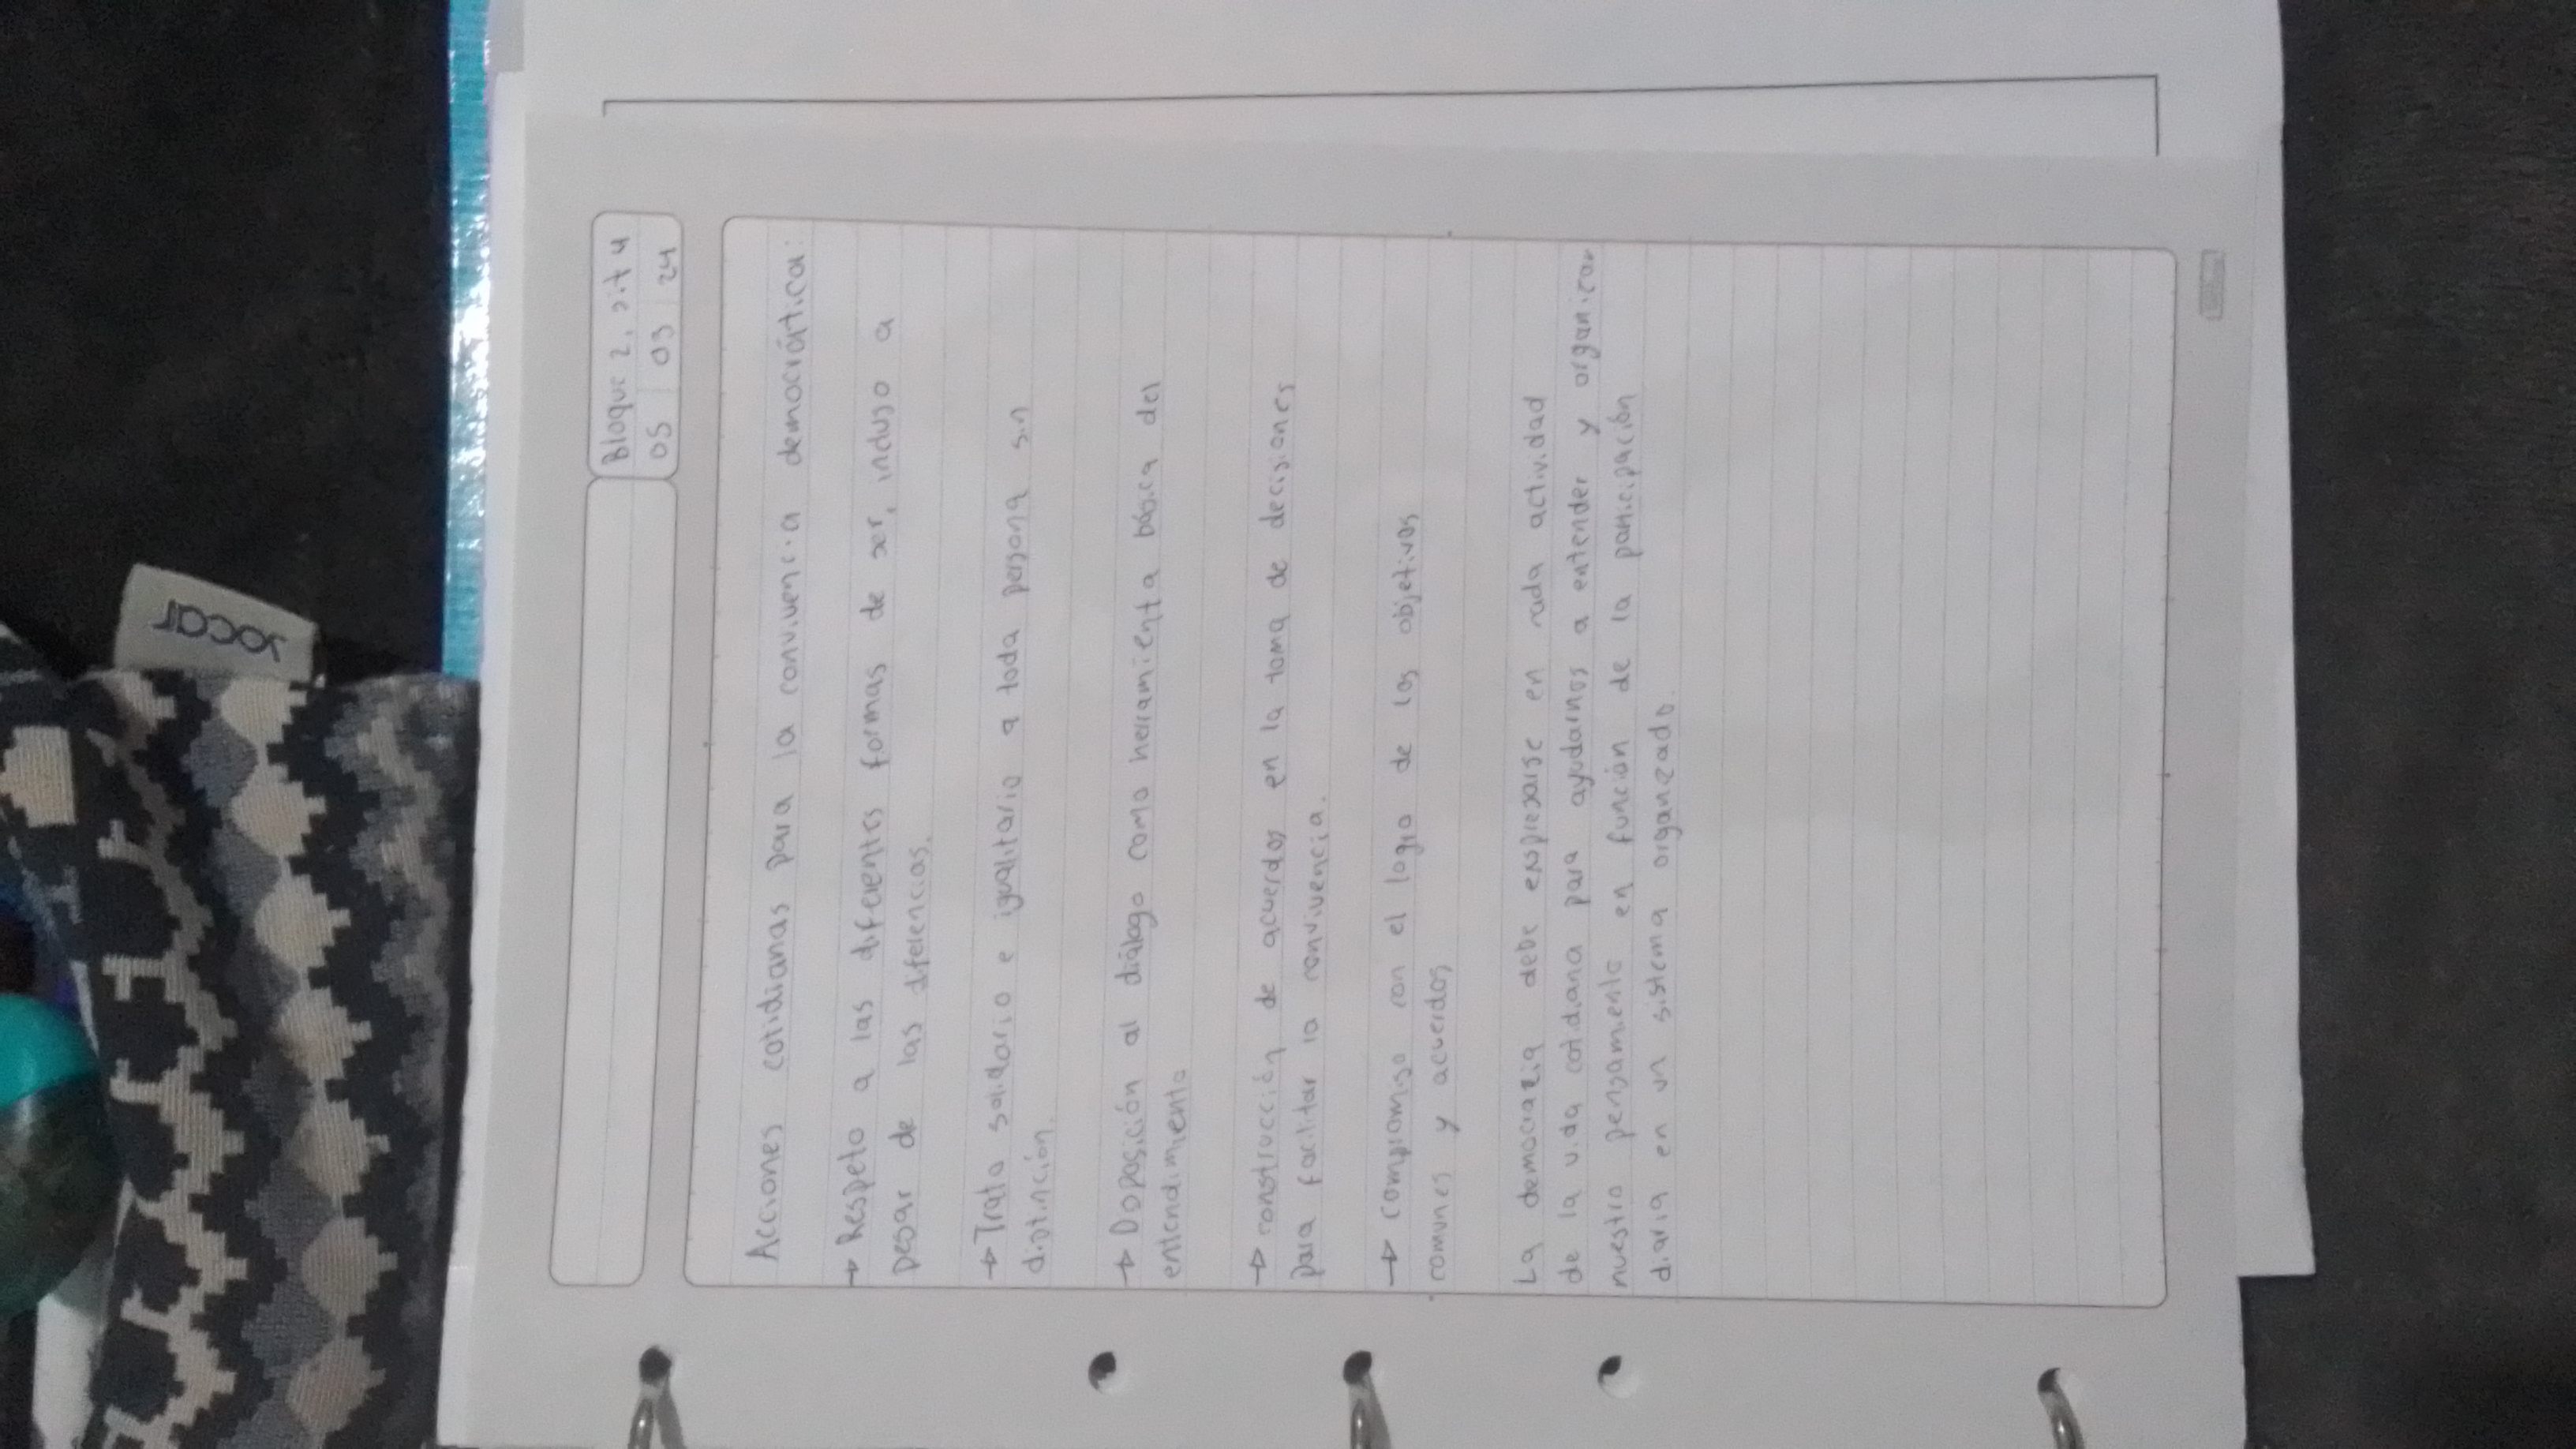 Bloque 2, sit 4
05 03 24
Acciones cotidianas para la convivencia democrática:
→ Respeto a las diferentes formas de ser, incluso a
pesar de las diferencias.
→ Trato solidario e igualitario a toda persona sin
distinción.
→ Disposición al diálogo como herramienta básica del
entendimiento
→ construcción de acuerdos en la toma de decisiones
para facilitar la convivencia.
→ compromiso con el logro de los objetivos
comunes y acuerdos
La democracia debe expresarse en cada actividad
de la vida cotidiana para ayudarnos a entender y organizar
nuestro pensamiento en función de la participación
diaria en un sistema organizado.
yocar